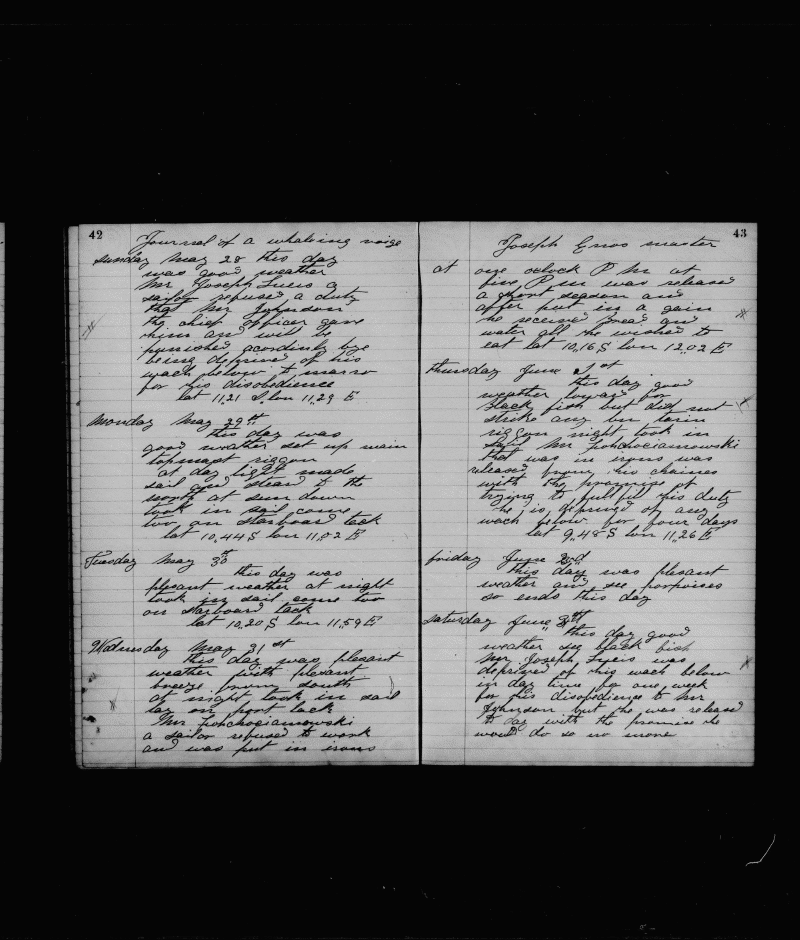 42
Journal of a whaleing voige
Sunday May 28 this day
was good weather
Mr Joseph a
sailor refused a duty
that Mr Johnson
the chief officer gave
him and will be
punished acordinly bye
being deprived of his
wach below to marro
for his disobedience
lat 11,21 S. lon 11,29 E
Monday May 29th
this day was
good weather set up main
topmast riggen
at day light made
sail and steard to the
north at sun down
took in sail come
two on starboard tack
lat 10,44 S lon 11,02 E
Tuesday May 30th
this day was
plesant weather at night
took in sail come two
on starboard tack
lat 10,20 S lon 11,59 E
Wednesday May 31st
this day was plesant
weather with plesant
breeze from south
at night took in sail
lay on port tack
Mr pohchociamowski
a sailor refused to work
and was put in irons
43
Joseph Enos master
at one oclock P M at
five P m was released
a short season and
after put in a gain
he received bread and
water all he wished to
eat lat 10,16 S lon 12,02 E
Thursday June 1st
this day good
weather loward for
black fish but did not
strike any
riggen night took in
sail Mr pohchociamowski
that was in irons was
released from his chaines
with the promise of
trying to fulful his duty
he is deprived of any
wach below for four days
lat 9,48 S lon 11,26 E
friday June 2nd
this day was plesant
weather and see porpoises
so ends this day
Saturday June 3
this day good
weather see black fish
Mr Joseph was
deprived of his wach below
in day time for one week
for his disopedience to Mr
Johnson but he was released
to day with the promise he
would do so no more